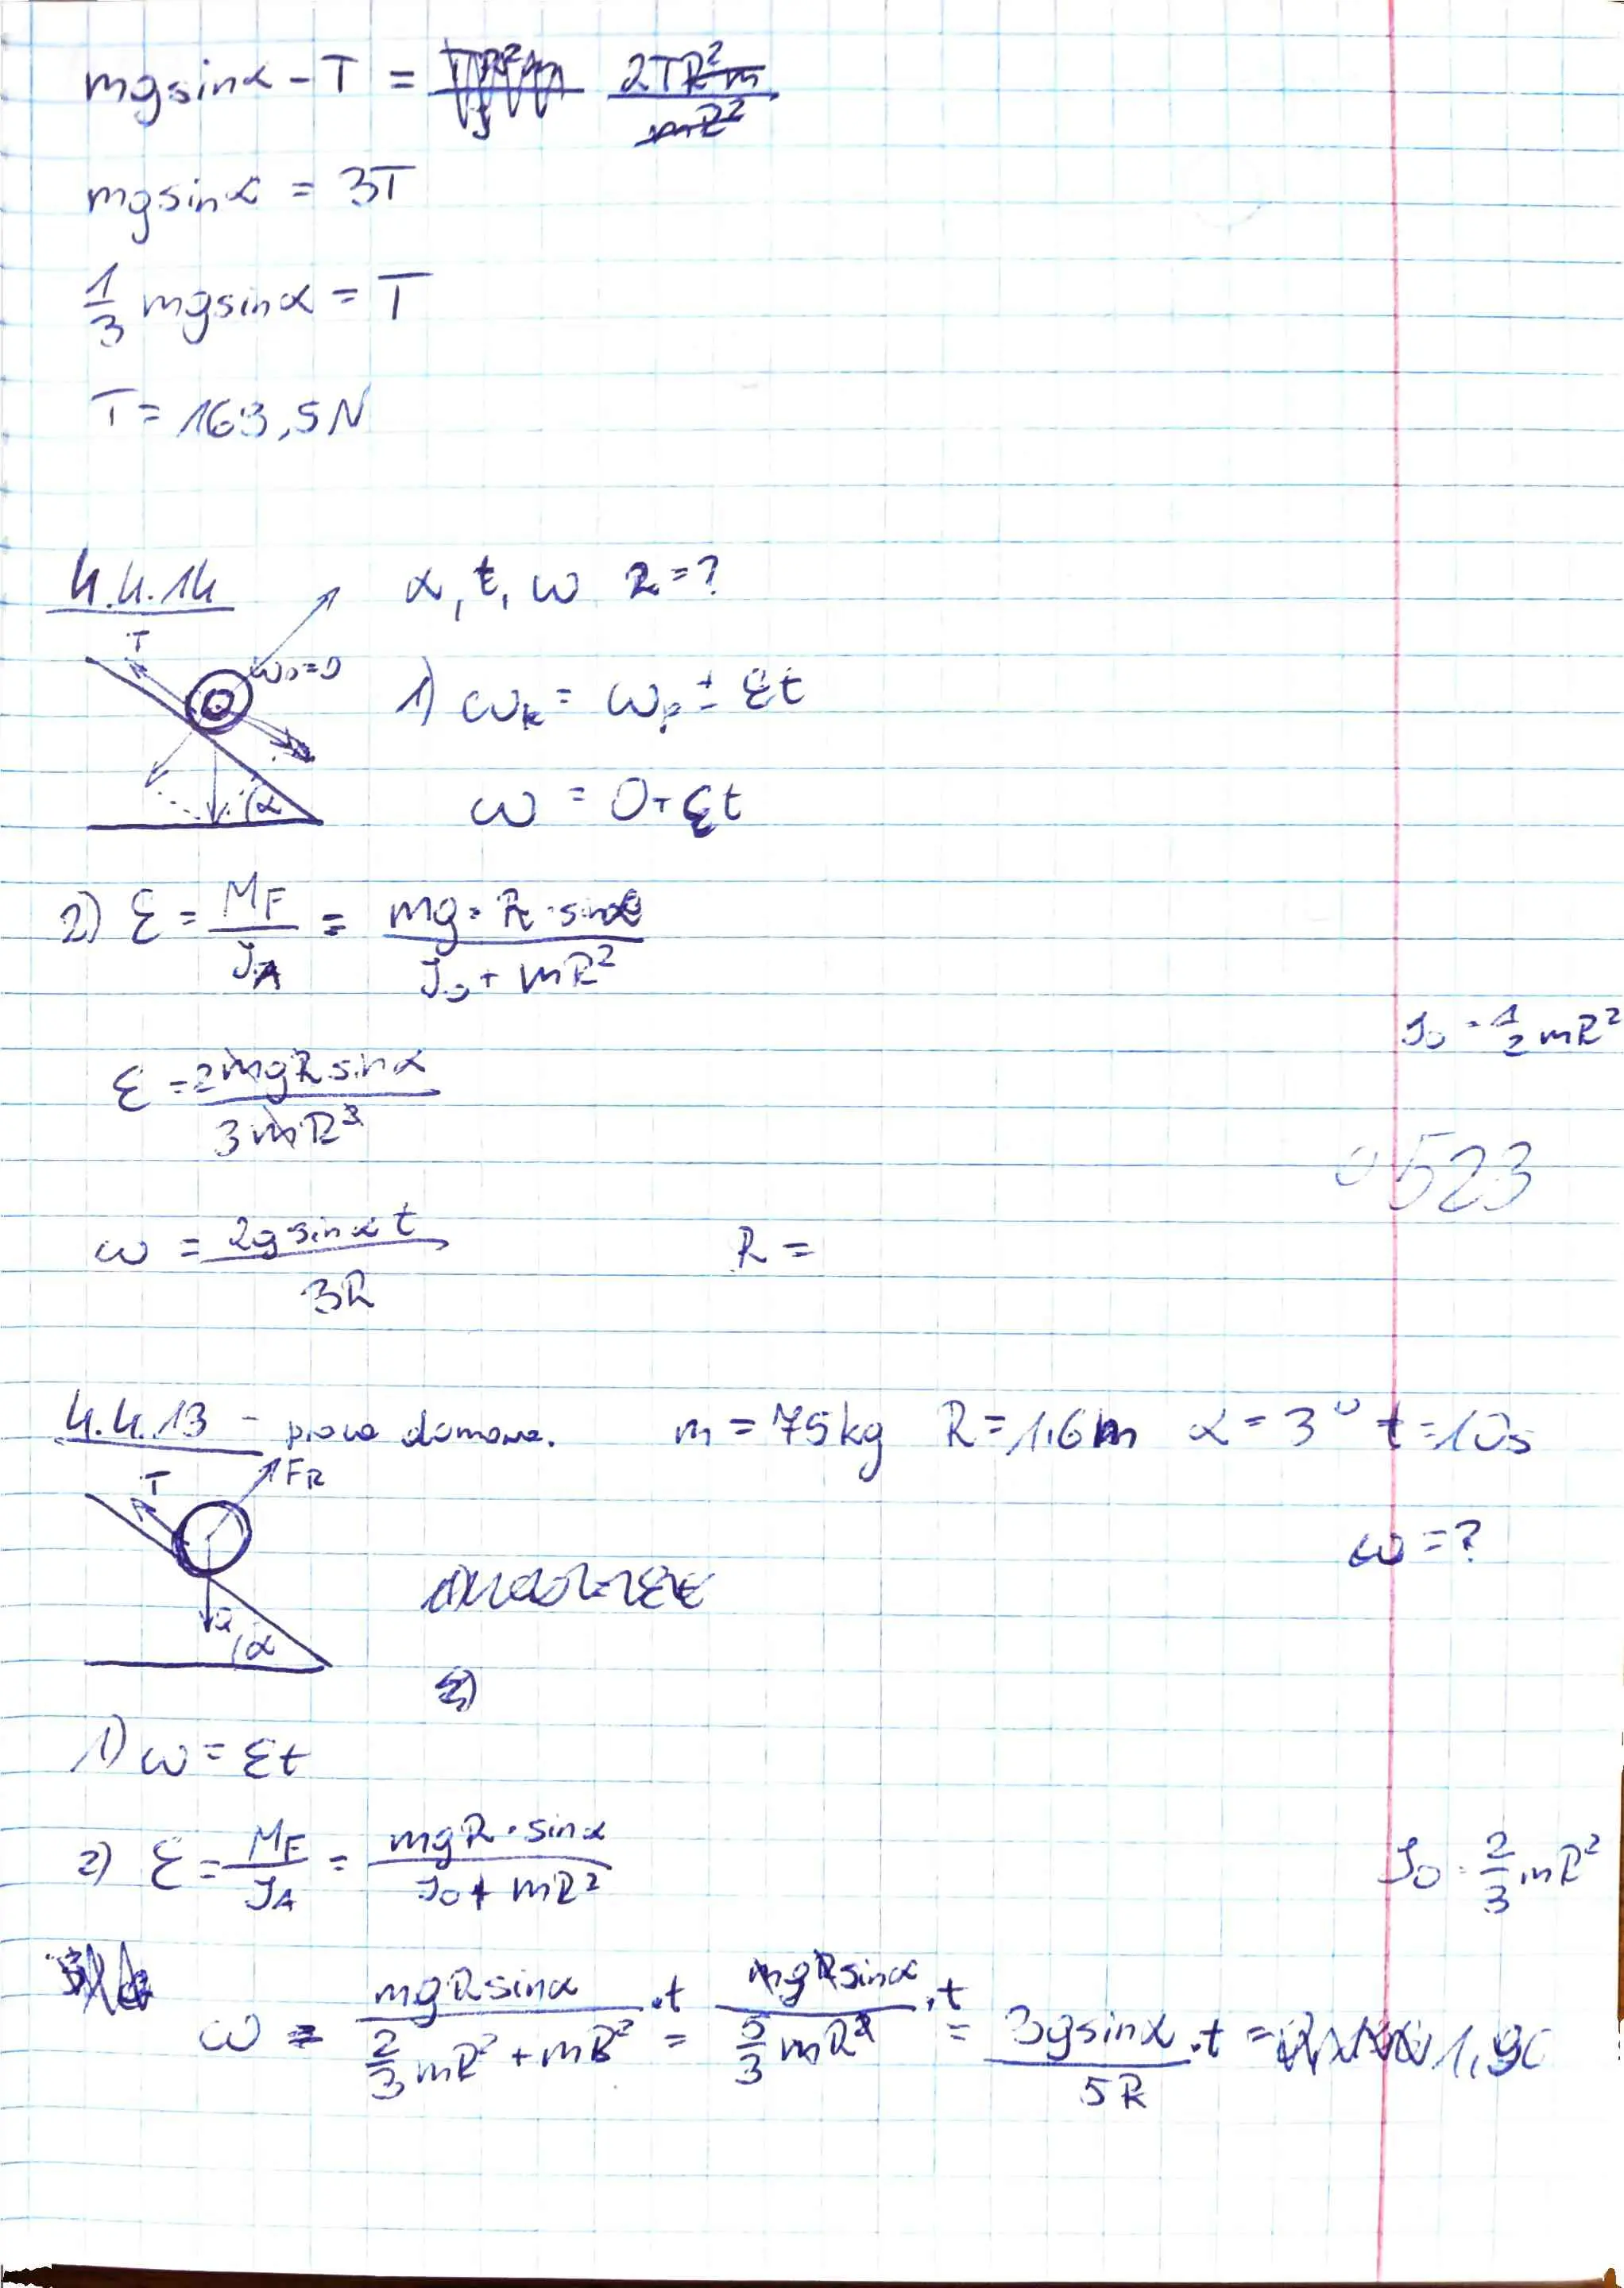 mgsinα - T = 2TR²m / mR²
mgsinα = 3T
1/3 mgsinα = T
T = 163,5N
4.4.14 α, t, ω R = ?
T ω₀=0
1) ωk = ωp ± εt
α
ω = 0+εt
2) ε = MF / JA = mg · R · sinα / J₀ + mR²
J₀ = 1/2 mR²
ε = 2mgRsinα / 3mR²
0523
ω = 2gsinα t / 3R R =
4.4.13 - praca domowa. m = 75kg R = 1,6m α = 3° t = 10s
T FR
ω = ?
α
2)
1) ω = εt
2) ε = MF / JA = mgR · sinα / J₀ + mR²
J₀ = 2/3 mR²
ω = mgRsinα / 2/3 mR² + mR² · t = mgRsinα / 5/3 mR² · t = 3gsinα / 5R · t = 1,9